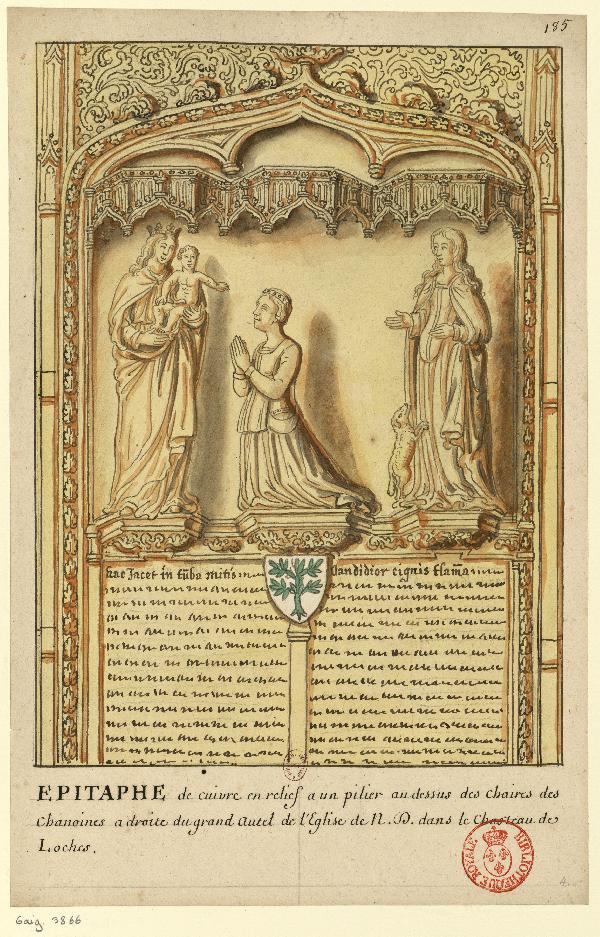 185
hac Jacet in tūba mitis
Candidior cignis flamā
EPITAPHE de cuivre en relief a un pilier au dessus des Chaires des
Chanoines a droite du grand Autel de l'Eglise de N. D. dans le Chasteau de
Loches.
BIBLIOTHEQUE ROYALE
Gaig. 3866